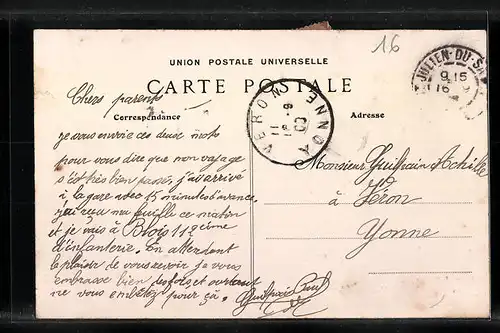 16
UNION POSTALE UNIVERSELLE
CARTE POSTALE
Correspondance
Adresse
JULIEN-DU-SA
9 15
16 9
VERON YONNE
Chers parents
je vous envoie ces deux mots
pour vous dire que mon voyage
s'est très bien passé, j'ai arrivé
à la gare avec 15 minutes d'avance.
j'ai reçu ma feuille ce matin
et je vais à Blois 113 ième
d'infanterie. En attendant
le plaisir de vous revoir je vous
embrasse bien des fois et surtout
ne vous embêtez pour ça.
Monsieur Guilhain Achille
à Véron
Yonne